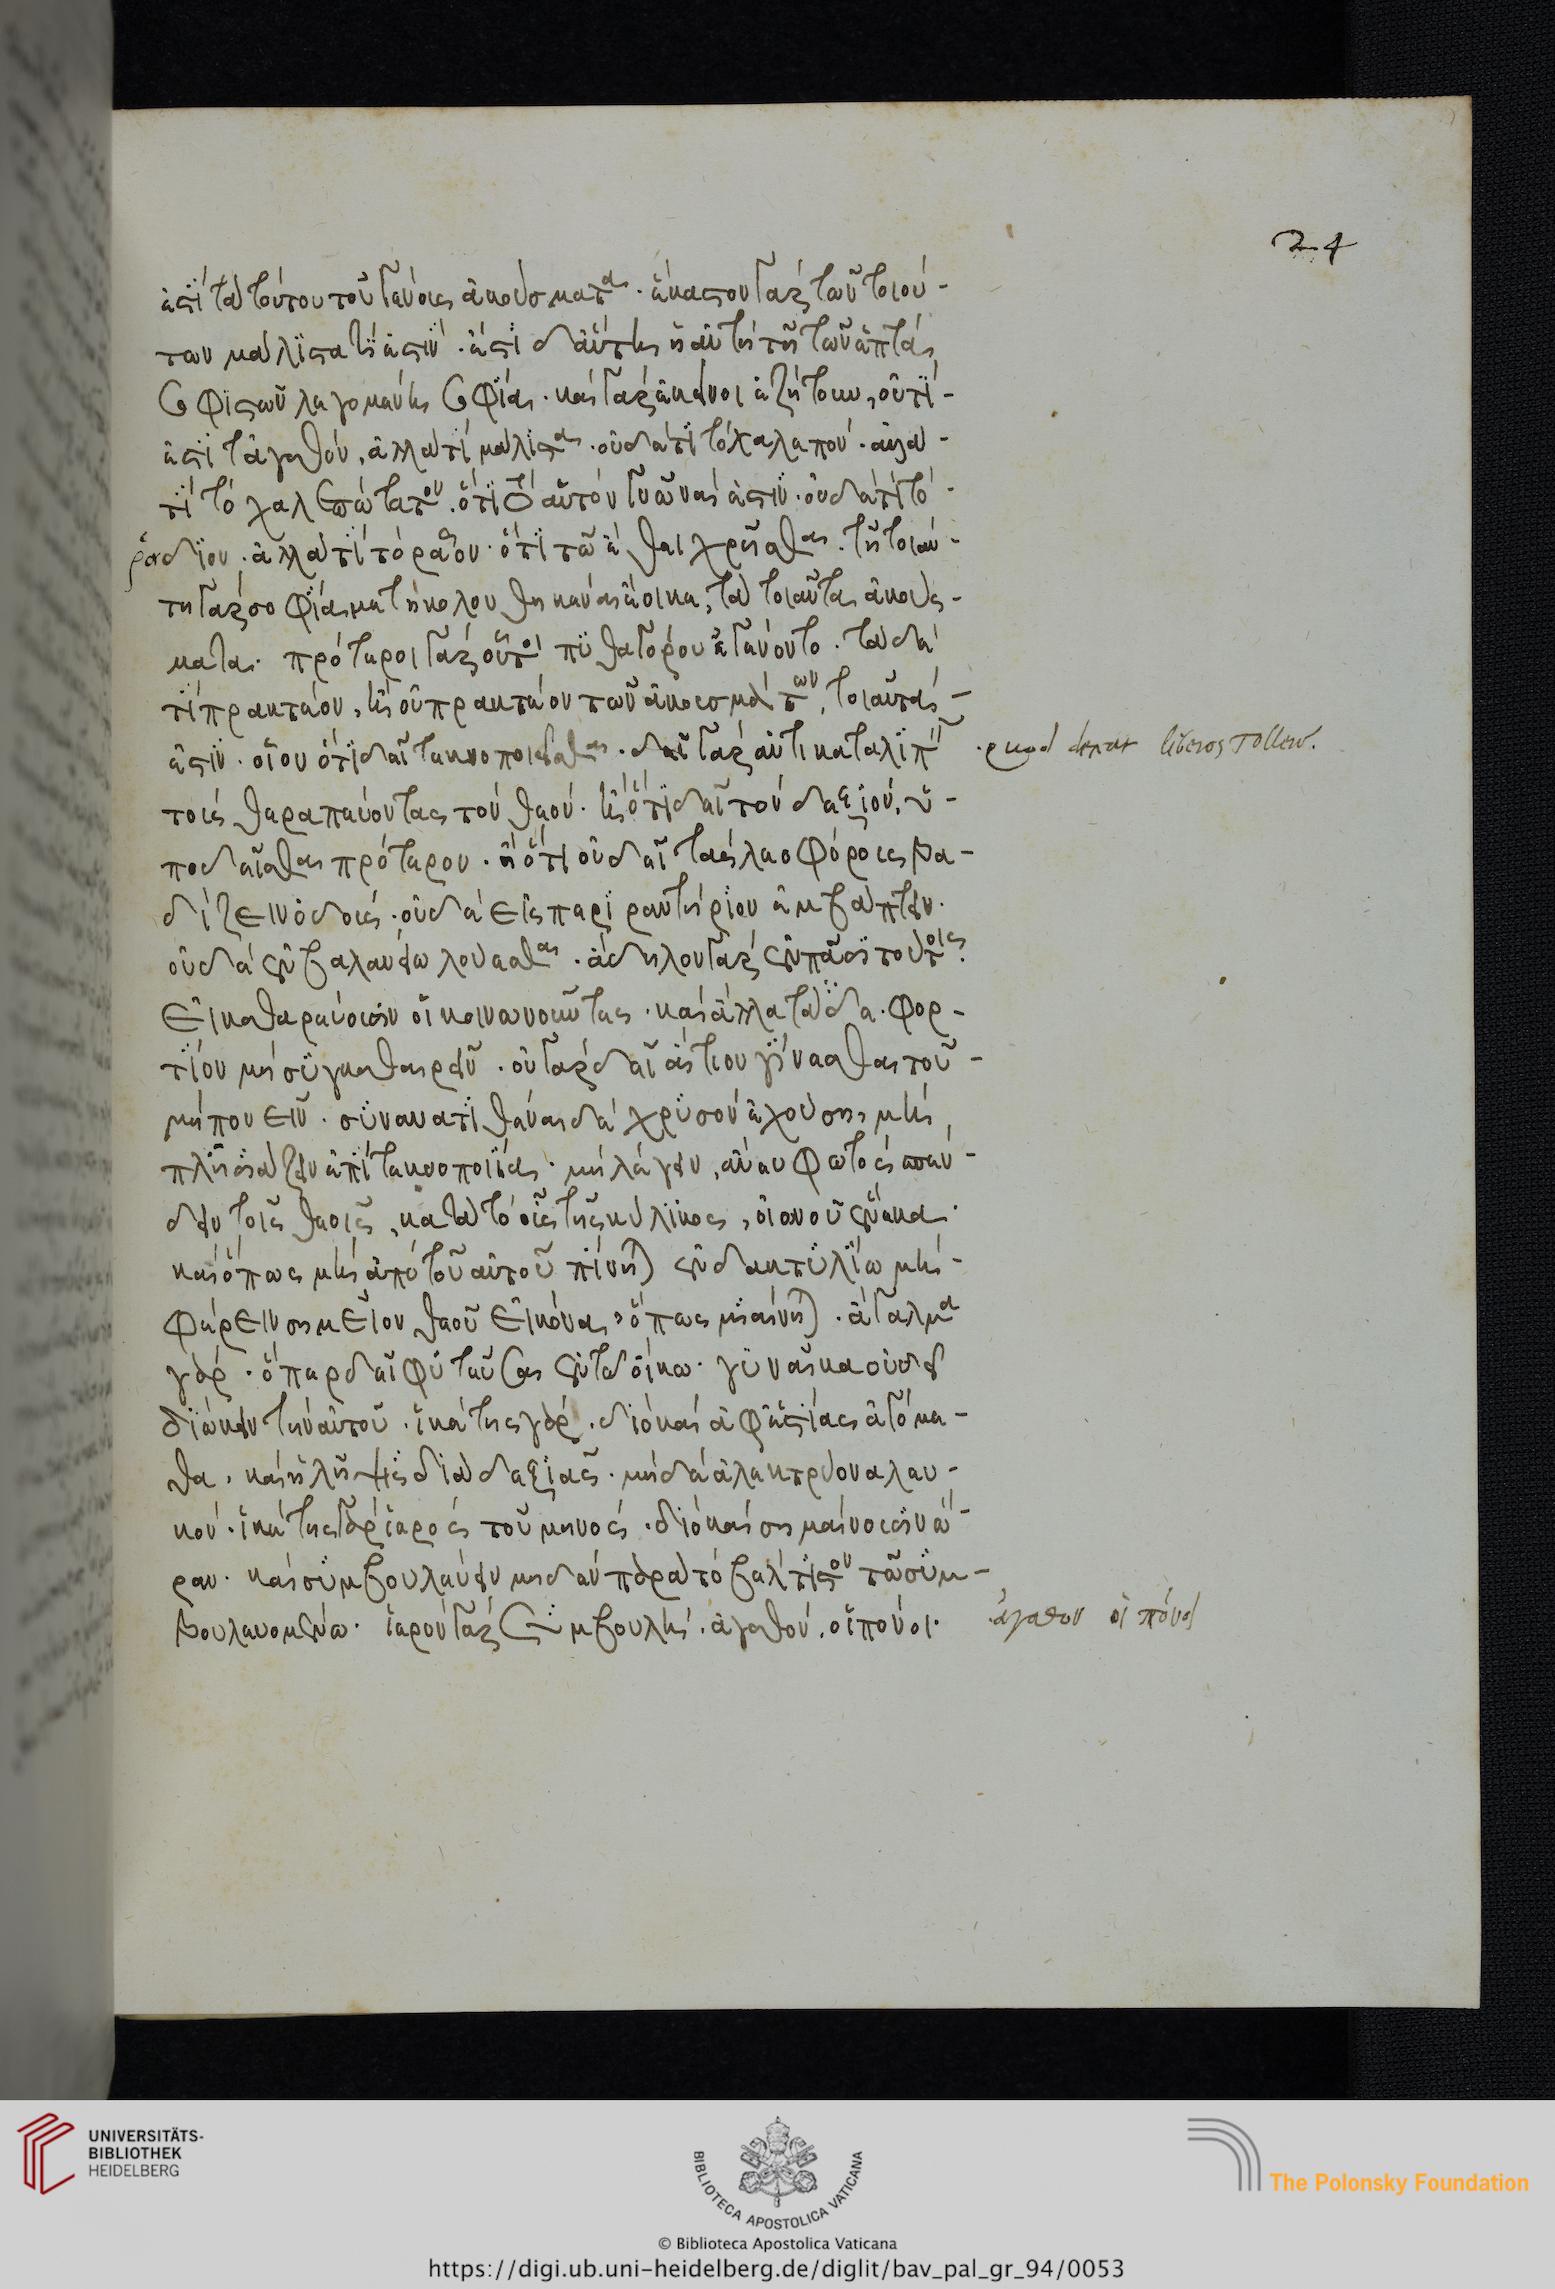 ἐστὶ τὰ τούτου τοῦ γένους ἀκούσματα· ἕκαστον γὰρ τῶν τοιού-
των μάλιστα τί ἐστιν· ἔστι δ' αὕτη ἡ αὐτὴ τῆ τῶν ἑπτὰ
σοφιστῶν λεγομένη σοφία· καὶ γὰρ ἐκεῖνοι ἐζήτουν, οὐ τί
ἐστι τἀγαθόν, ἀλλὰ τί μάλιστα· οὐδὲ τί τὸ χαλεπόν· ἀλλὰ
τί τὸ χαλεπώτατον· ὅτι τὸ αὑτὸν γνῶναί ἐστιν· οὐδὲ τί τὸ
ῥάδιον· ἀλλὰ τί τὸ ρᾶστον· ὅτι τῶ ἔθει χρῆσθαι· τῆ τοιαύ-
τη γὰρ σοφία μετηκολουθηκέναι ἔοικε, τὰ τοιαῦτα ἀκούσ-
ματα· πρότεροι γὰρ οὗτοι πυθαγόρου ἐγένοντο· τὰ δὲ
τί πρακτέον, ἢ οὐ πρακτέον τῶν ἀκουσμάτων, τοιαῦτά
ἐστιν· οἷον ὅτι δεῖ τεκνοποιεῖσθαι· δεῖ γὰρ ἀντικαταλιπεῖν
τοὺς θεραπεύοντας τὸν θεόν· ἢ ὅτι δεῖ τὸν δεξιόν, ὑ-
ποδεῖσθαι πρότερον· ἢ ὅτι οὐ δεῖ τὰς λεοφόρους βα-
δίζειν ὁδούς· οὐδὲ εἰς περιραντήριον ἐμβάπτειν·
οὐδὲ ἐν βαλανείω λούεσθαι· ἄδηλον γὰρ ἐν πᾶσι τούτοις·
εἰ καθαρεύουσιν οἱ κοινωνοῦντες· καὶ ἄλλα τάδε· φορ-
τίον μὴ συγκαθαιρεῖν· οὐ γὰρ δεῖ αἴτιον γίνεσθαι τοῦ
μὴ πονεῖν· συνανατιθέναι δὲ χρυσὸν ἐχούση, μὴ
πλησιάζειν ἐπὶ τεκνοποιία· μὴ λέγειν, ἄνευ φωτός σπέν-
δειν τοῖς θεοῖς, κατὰ τὸ οὖς τῆς κύλικος, οἰωνοῦ ἕνεκα·
καὶ ὅπως μὴ ἀπὸ τοῦ αὐτοῦ πίνηται ἐν δακτυλίω μὴ
φέρειν σημεῖον θεοῦ εἰκόνα, ὅπως μιαίνηται· ἄγαλμα
γάρ· ὅπερ δεῖ φυτεῦσαι ἐν τῶ οἴκω· γυναῖκα οὐ δεῖ
διώκειν τὴν αὑτοῦ· ἱκέτης γάρ· διὸ καὶ ἀφ' ἑστίας ἀγόμε-
θα· καὶ ἡ λῆψις διὰ δεξιᾶς· μηδὲ ἀλεκτρυόνα λευ-
κόν· ἱκέτης γὰρ ἱερὸς τοῦ μηνός· διὸ καὶ σημαίνουσιν ὥ-
ραν· καὶ συμβουλεύειν μηδὲν παρὰ τὸ βέλτιστον τῶ συμ-
βουλευομένω· ἱερὸν γὰρ συμβουλή· ἀγαθόν, οἱ πόνοι·
24
quod deceat liberos tollere.
ἀγαθον οἱ πόνοι
UNIVERSITÄTS-
BIBLIOTHEK
HEIDELBERG
BIBLIOTECA APOSTOLICA VATICANA
The Polonsky Foundation
© Biblioteca Apostolica Vaticana
https://digi.ub.uni-heidelberg.de/diglit/bav_pal_gr_94/0053